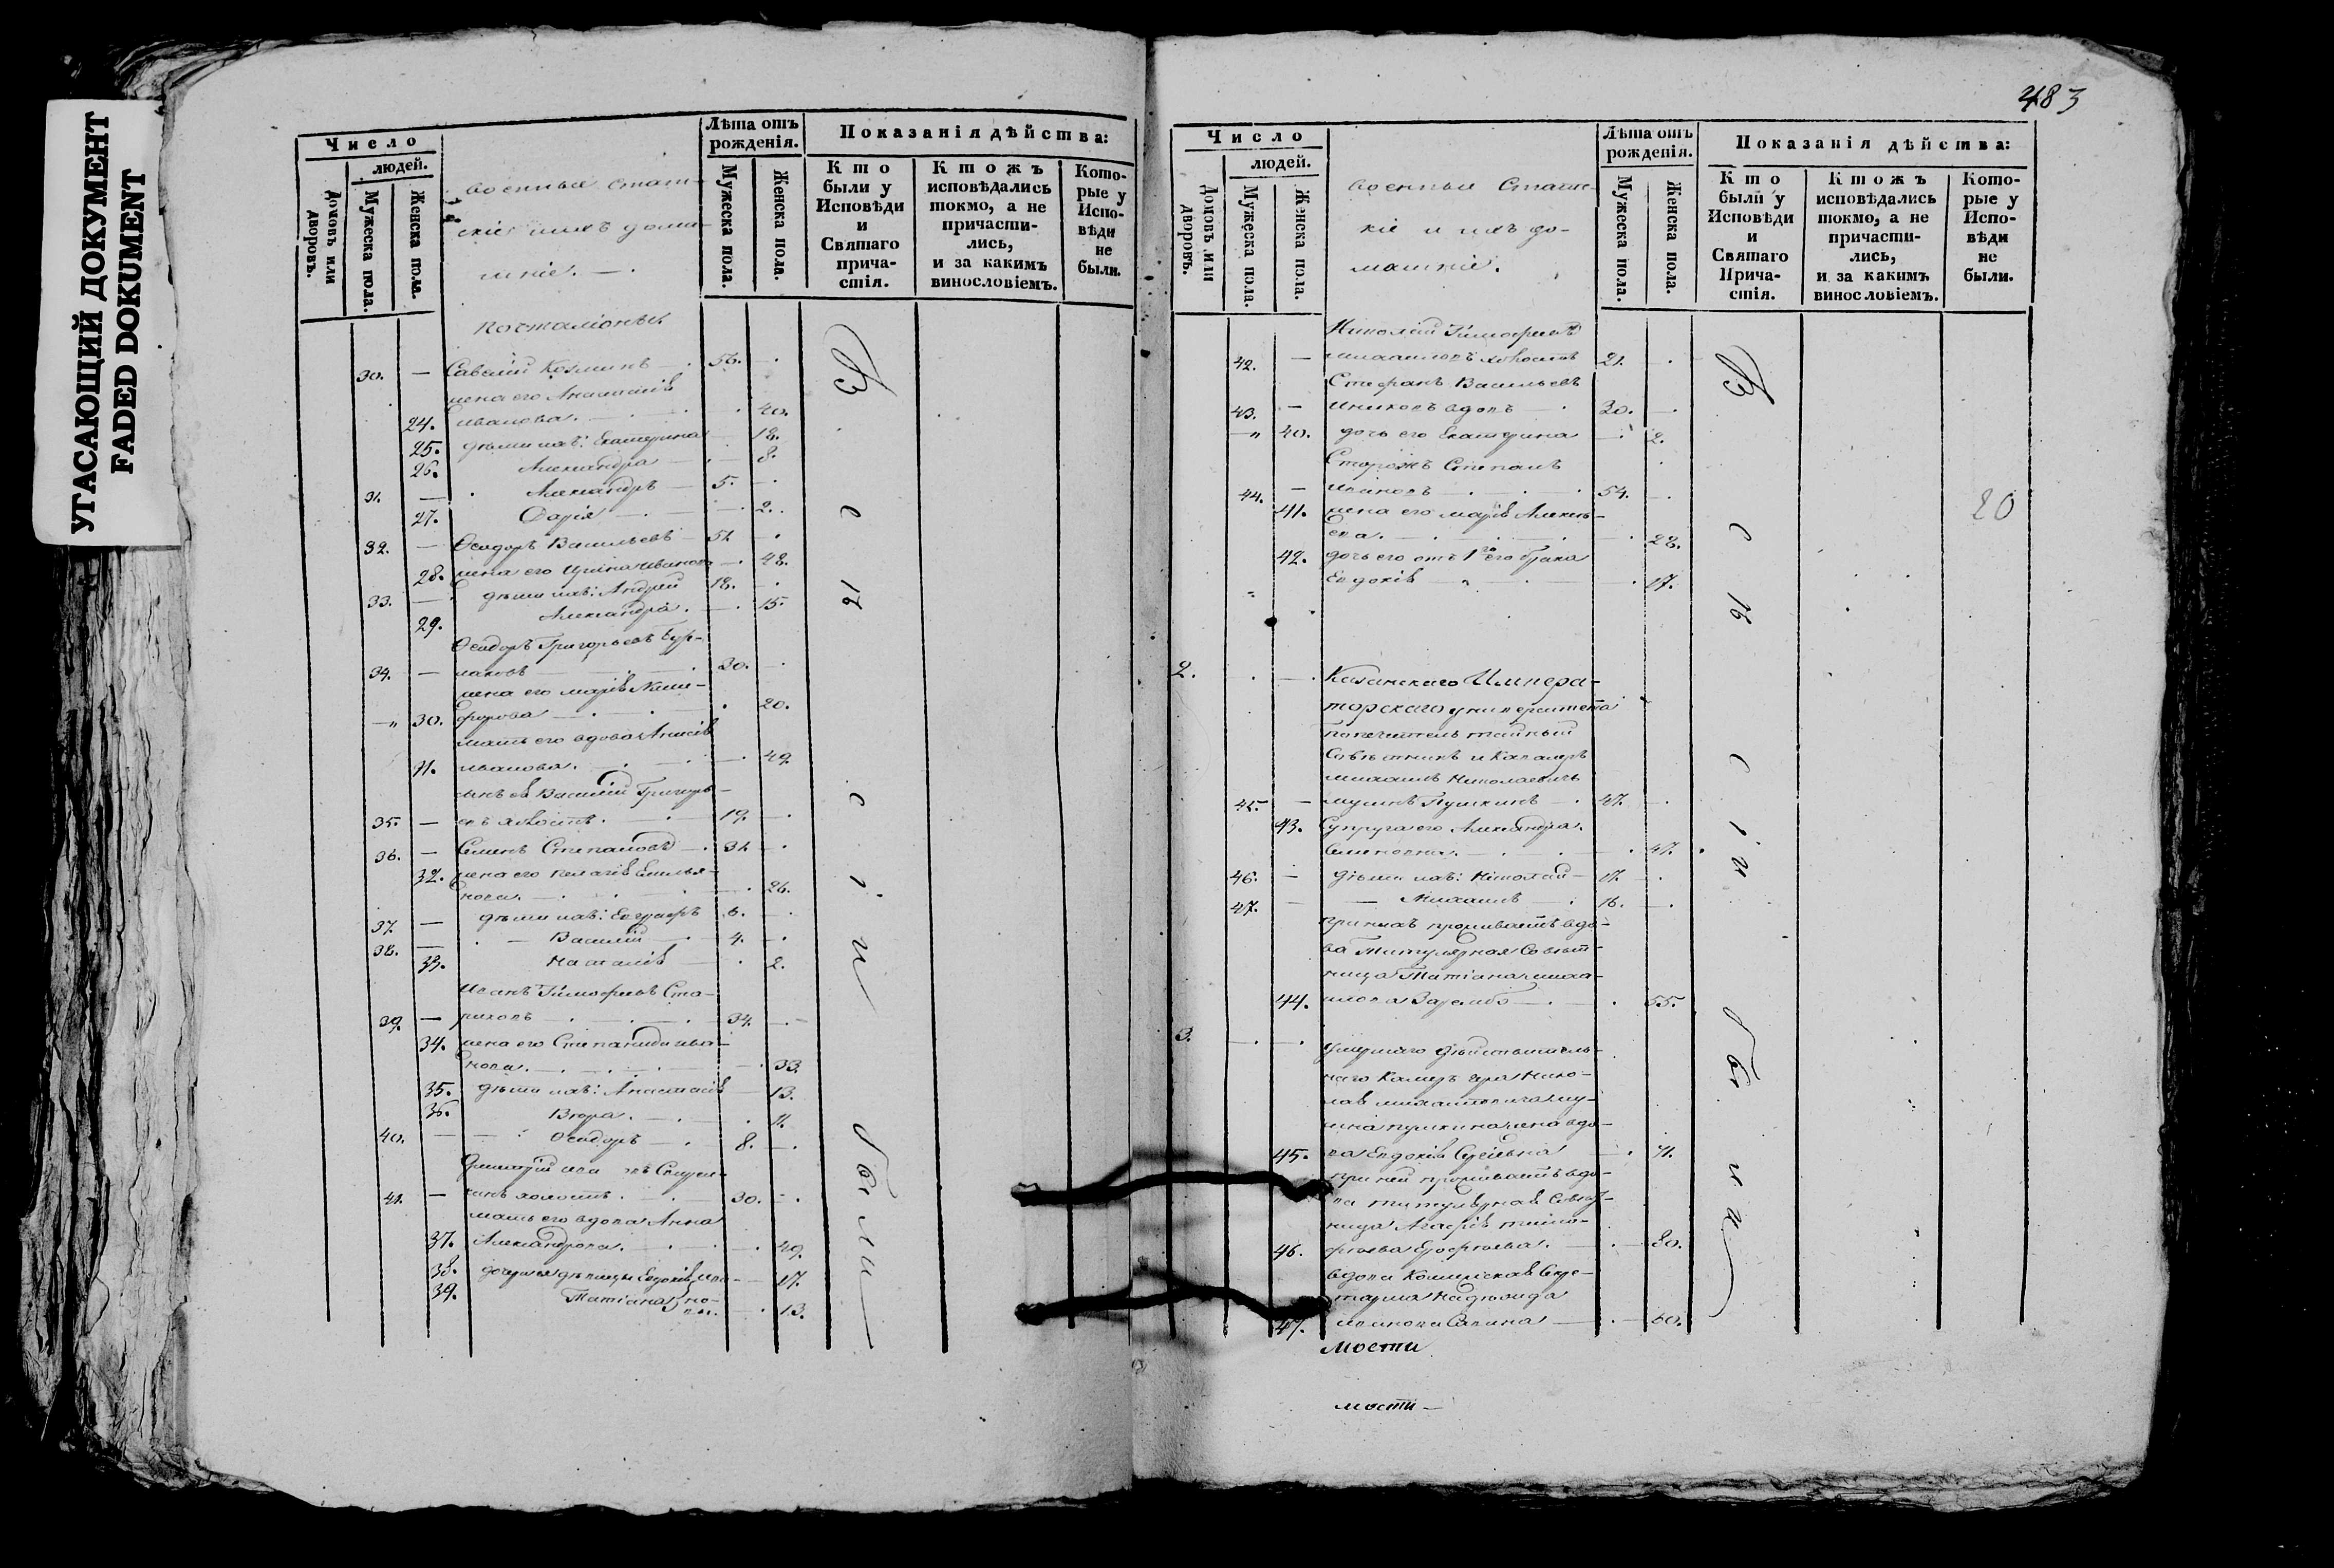 УГАСАЮЩИЙ ДОКУМЕНТ
FADED DOKUMENT
Число
людей.
Домовъ или дворовъ.
Мужеска пола.
Женска пола.
военные стат-
скіе и ихъ дома-
шніе. —
Лѣта отъ рожденія.
Мужеска пола.
Женска пола.
Показанія дѣйства:
Кто были у Исповѣди и Святаго прича-стія.
Ктожъ исповѣдались токмо, а не причасти-лись, и за какимъ винословіемъ.
Кото-рые у Испо-вѣди не были.
Почталіоны
30. — Савелій Козминъ — 56.
жена его Анастасія
24. Иванова. 40.
25. дѣти ихъ: Екатерина 12.
26. Александра — 8.
31. — Александръ — 5.
27. Дарія — 2.
32. — Ѳеодоръ Васильевъ — 51.
28. жена его Ирина Иванова 48.
33. — дѣти ихъ: Андрей 18.
29. Александра. 15.
Ѳеодоръ Григорьевъ Бур-
34. — лаковъ 30.
жена его Марія Ники-
30. форова 20.
мать его вдова Анисія
31. Иванова. 49.
сынъ ея Василій Григорь-
35. — евъ холостъ. 19.
36. — Семенъ Степановъ 31.
32. жена его Пелагія Емелья-
нова. 26.
37. — дѣти ихъ: Евграфъ 6.
38. — Василій 4.
33. Наталія 2.
Иванъ Тимофеевъ Ста-
39. — риковъ 34.
34. жена его Степанида Ива-
нова. 33.
35. дѣти ихъ: Анастасія 13.
36. Вѣра. 11.
40. — Ѳеодоръ 8.
Димитрій
41. — холостъ. 30.
мать его вдова Анна
37. Александрова. 49.
38. дочери ея дѣвицы Евдокія Ива- 17.
39. Татіана но-вы. 13.
Всѣ сіи были
483
Число
людей.
Домовъ или дворовъ.
Мужеска пола.
Женска пола.
военные Статс-
кіе и ихъ до-
машніе.
Лѣта отъ рожденія.
Мужеска пола.
Женска пола.
Показанія дѣйства:
Кто были у Исповѣди и Святаго Прича-стія.
Ктожъ исповѣдались токмо, а не причасти-лись, и за какимъ винословіемъ.
Кото-рые у Испо-вѣди не были.
Николай Тимофеевъ
42. — Михайловъ холостъ 21.
Стефанъ Васильевъ
43. — вдовъ 30.
40. дочь его Екатерина 2.
Сторожъ Степанъ
44. — Ивановъ 54.
41. жена его Марія Алексѣ-
ева. 28.
42. дочь его отъ 1го его брака
Евдокія 17.
20
2. Казанскаго Импера-
торскаго университета
Попечитель тайный
Совѣтникъ и Кавалеръ
Михаилъ Николаевичь
45. — Мусинъ Пушкинъ 47.
43. Супруга его Александра
Семеновна. 47.
46. — дѣти ихъ: Николай 17.
47. — Михаилъ 16.
При нихъ проживаетъ вдо-
ва Титулярная Совѣт-
ница Татіана Миха-
44. илова 55.
3. Умершаго Дѣйствитель-
наго Камергера Нико-
лая Михайловича Му-
сина Пушкина жена вдо-
45. ва Евдокія Сергіевна 71.
При ней проживаетъ вдо-
ва титулярная Совѣт-
ница Агафія Тимо-
46. фѣева Ерофѣева. 80.
вдова Коллежская Секре-
тарша Надѣжда
47. Иванова 60.
Всѣ сіи были
Мости
мости —